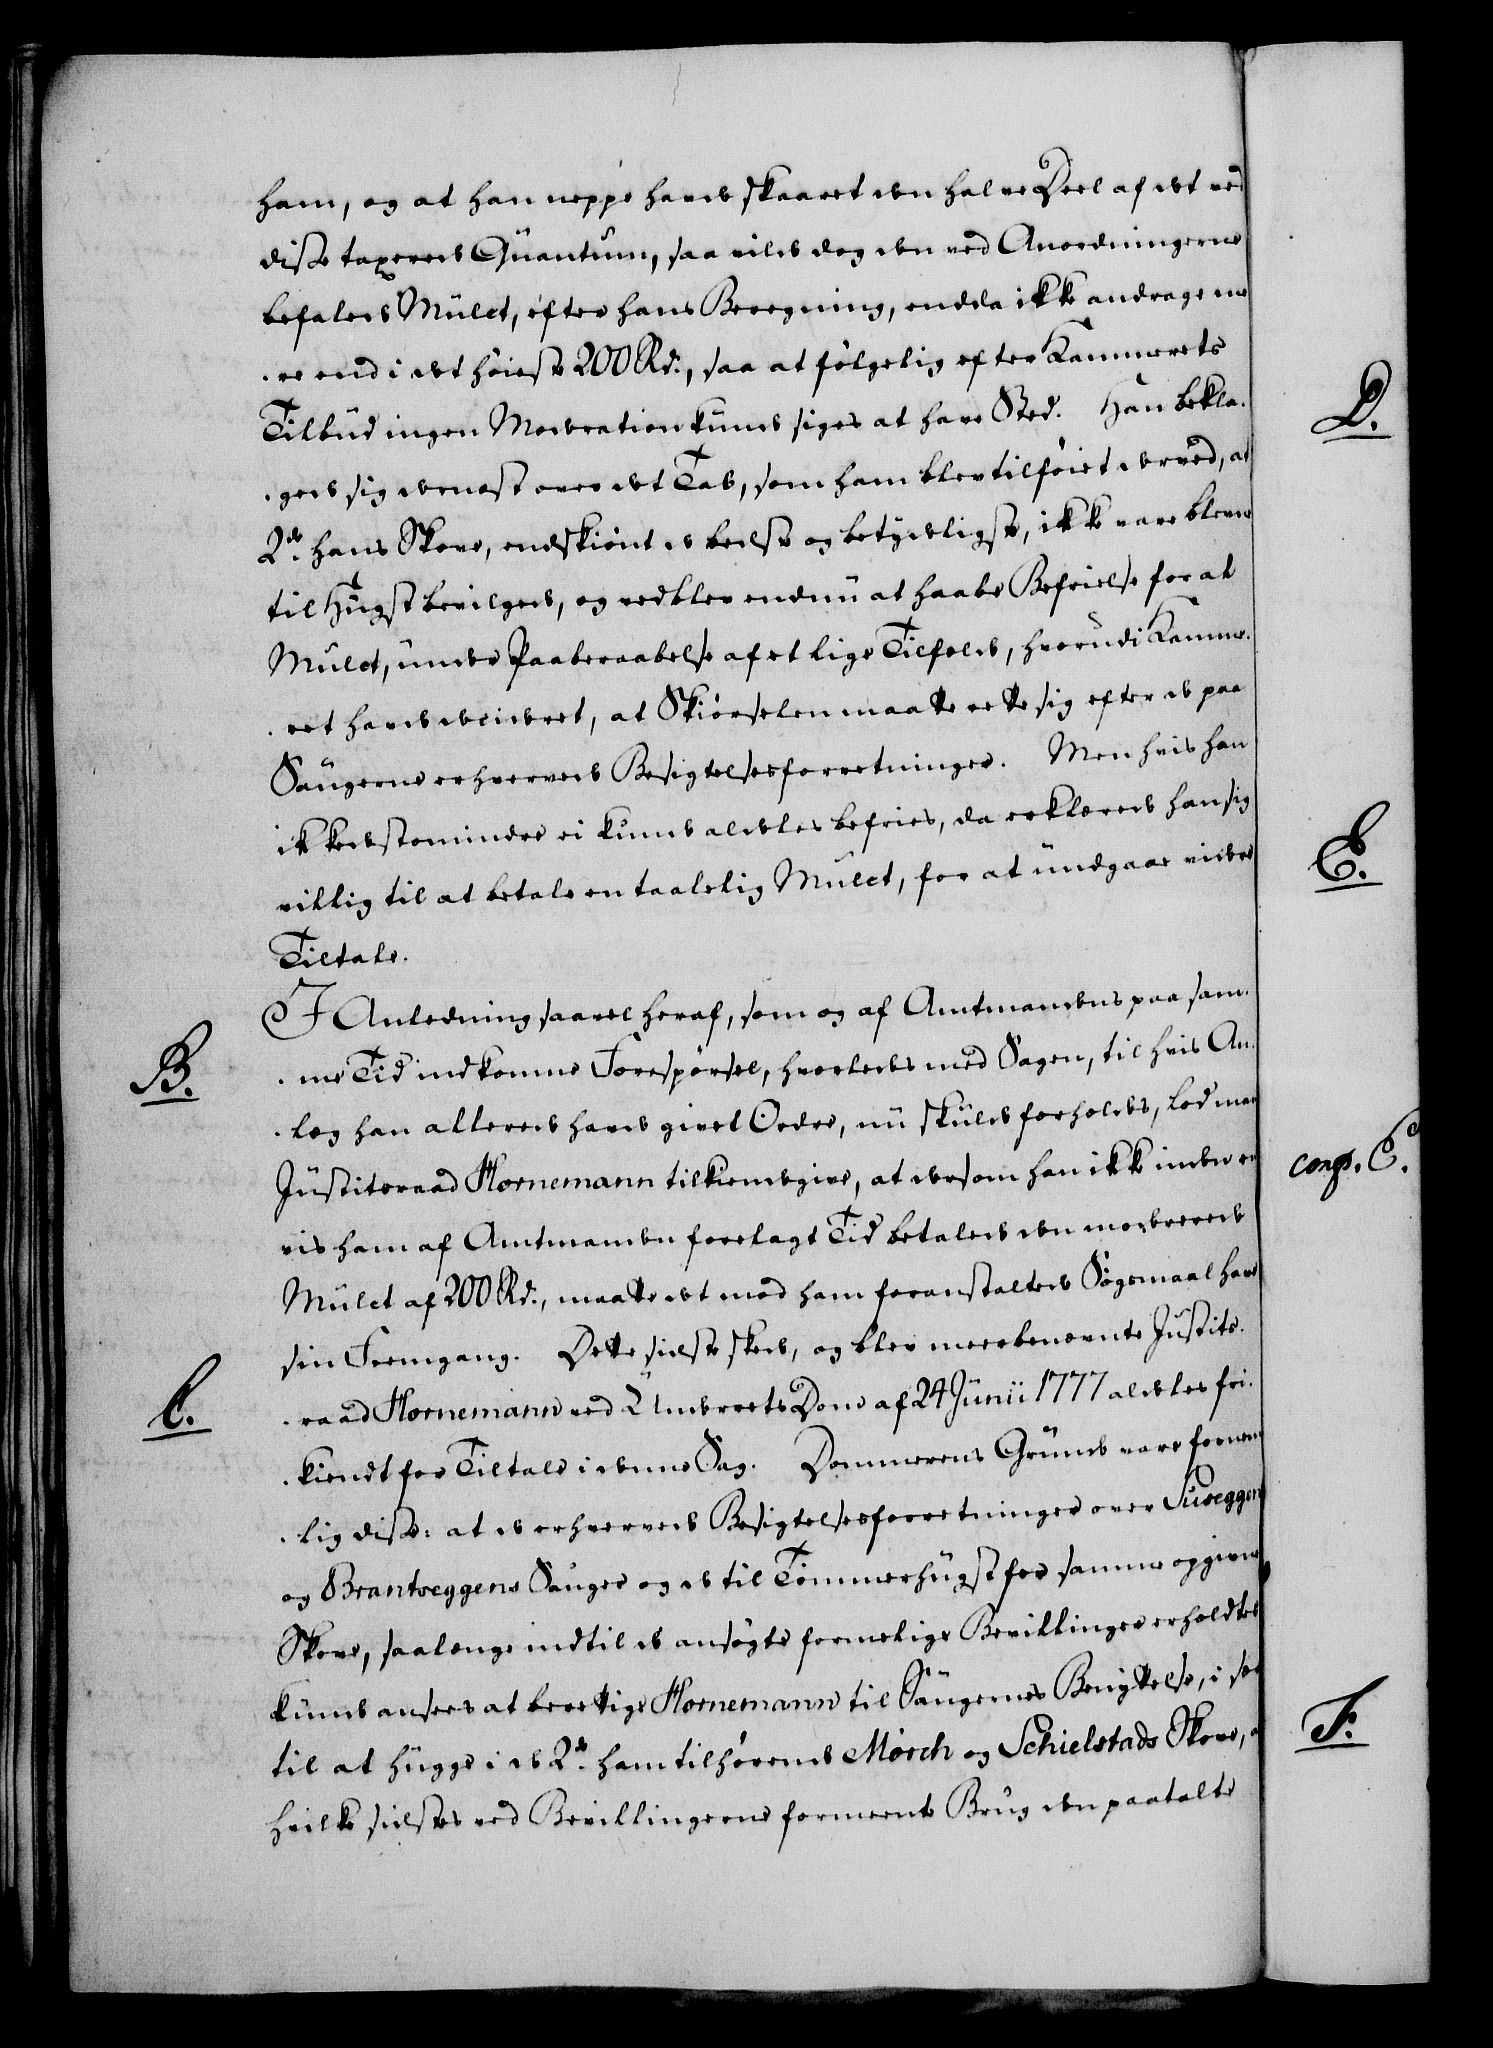 ham, og at han neppe havde skaaret den halve Deel af det ved
disse taxerede Quantum, saa vilde dog den ved Anordningerne
befalede Mulct, efter hans Beregning, endda ikke andrage me
re end i det höieste 200 Rd:, saa at fölgelig efter Kammerets
Tilbud ingen Moderation kunde siges at have Sted. Han bekla-
gede sig dernæst over det Tab, som ham blev tilföiet derved, at
2de hans Skove, endskiönt de bedste og betydeligste, ikke vare blevne
til Hugst bevilgede, og vedblev endnu at haabe Befrielse for at
Mulct, under Paaberaabelse af et lige Tilfælde, hvorudi Kamme-
ret havde decideret, at Skiörselen maatte rette sig efter de paa
Saugerne erhvervede Besigtelsesforretninger. Men hvis han
ikkedestomindre ei kunde aldeles befries, da erklærede han sig
villig til at betale en taalelig Mulct, for at undgaae videre
Tiltale.
B.
I Anledning saavel heraf, som og af Amtmandens paa sam-
me Tid indkomne Forespörsel, hvorledes med Sagen, til hvis An-
læg han allerede havde givet Ordre, nu skulde forholdes, lod man
Justitsraad Hornemann tilkiendegive, at dersom han ikke inden en
vis ham af Amtmanden forelagt Tid betalede den modererede
Mulct af 200 Rd:, maatte det mod ham foranstaltede Sögsmaal have
sin Fremgang. Dette sidste skede, og blev meerbenævnte Justits-
C.
raad Hornemann ved Underrets Dom af 24 Junii 1777 aldeles fri-
kiendt for Tiltale i denne Sag. Dommerens Grunde vare fornem
lig disse: at de erhvervede Besigtelsesforretninger over Suseggen
og Brantseggens Sauger og de til Tömmerhugst for samme opgivne
Skove, saalænge indtil de ansögte formelige Bevillinger erholdtes
kunde ansees at berettige Hornemann til Saugernes Benyttelse, i sær
til at hugge i de 2de ham tilhörende Mörch og Schielstads Skove, a
hvilke sidstes ved Bevillingerne formeente Brug den paatalte
D.
E.
confr. C.
F.